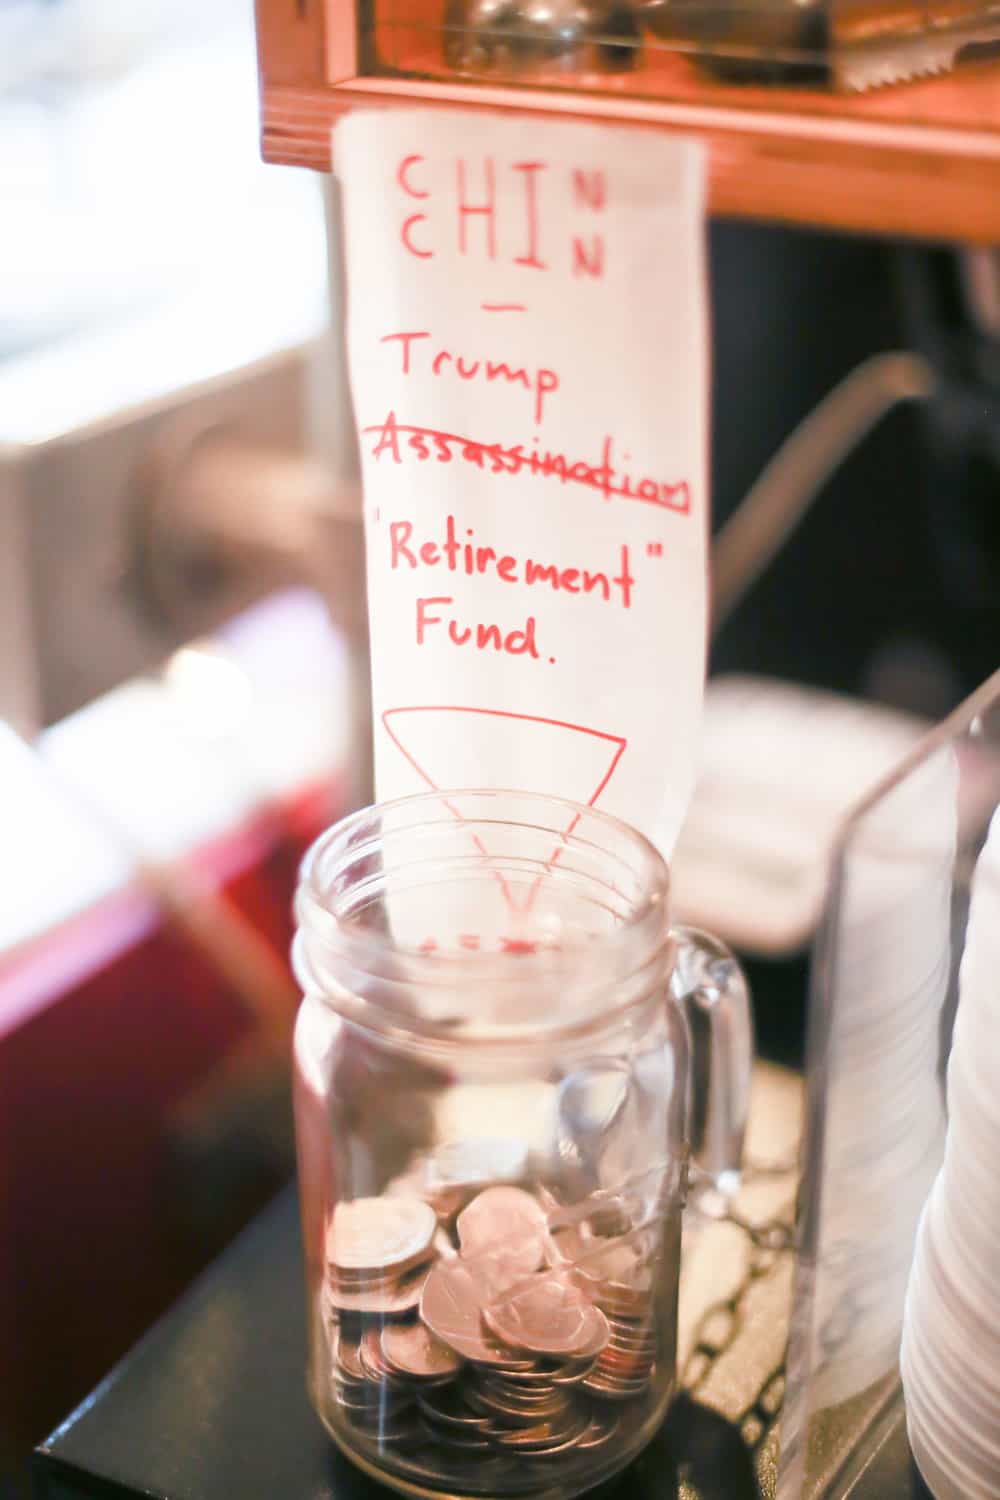 C HI N
C HI N
—
Trump
Assassination
"Retirement"
Fund.